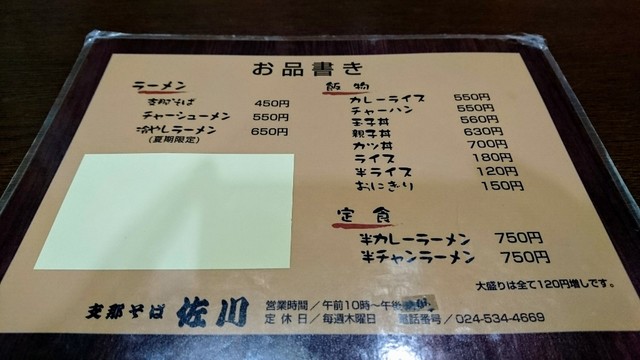 お品書き
ラーメン
支那そば 450円
チャーシューメン 550円
冷やしラーメン 650円
(夏期限定)
飯物
カレーライス 550円
チャーハン 550円
玉子丼 560円
親子丼 630円
カツ丼 700円
ライス 180円
半ライス 120円
おにぎり 150円
定食
半カレーラーメン 750円
半チャンラーメン 750円
大盛りは全て120円増しです。
支那そば 佐川
営業時間／午前10時～午後
定休日／毎週木曜日 電話番号／024-534-4669